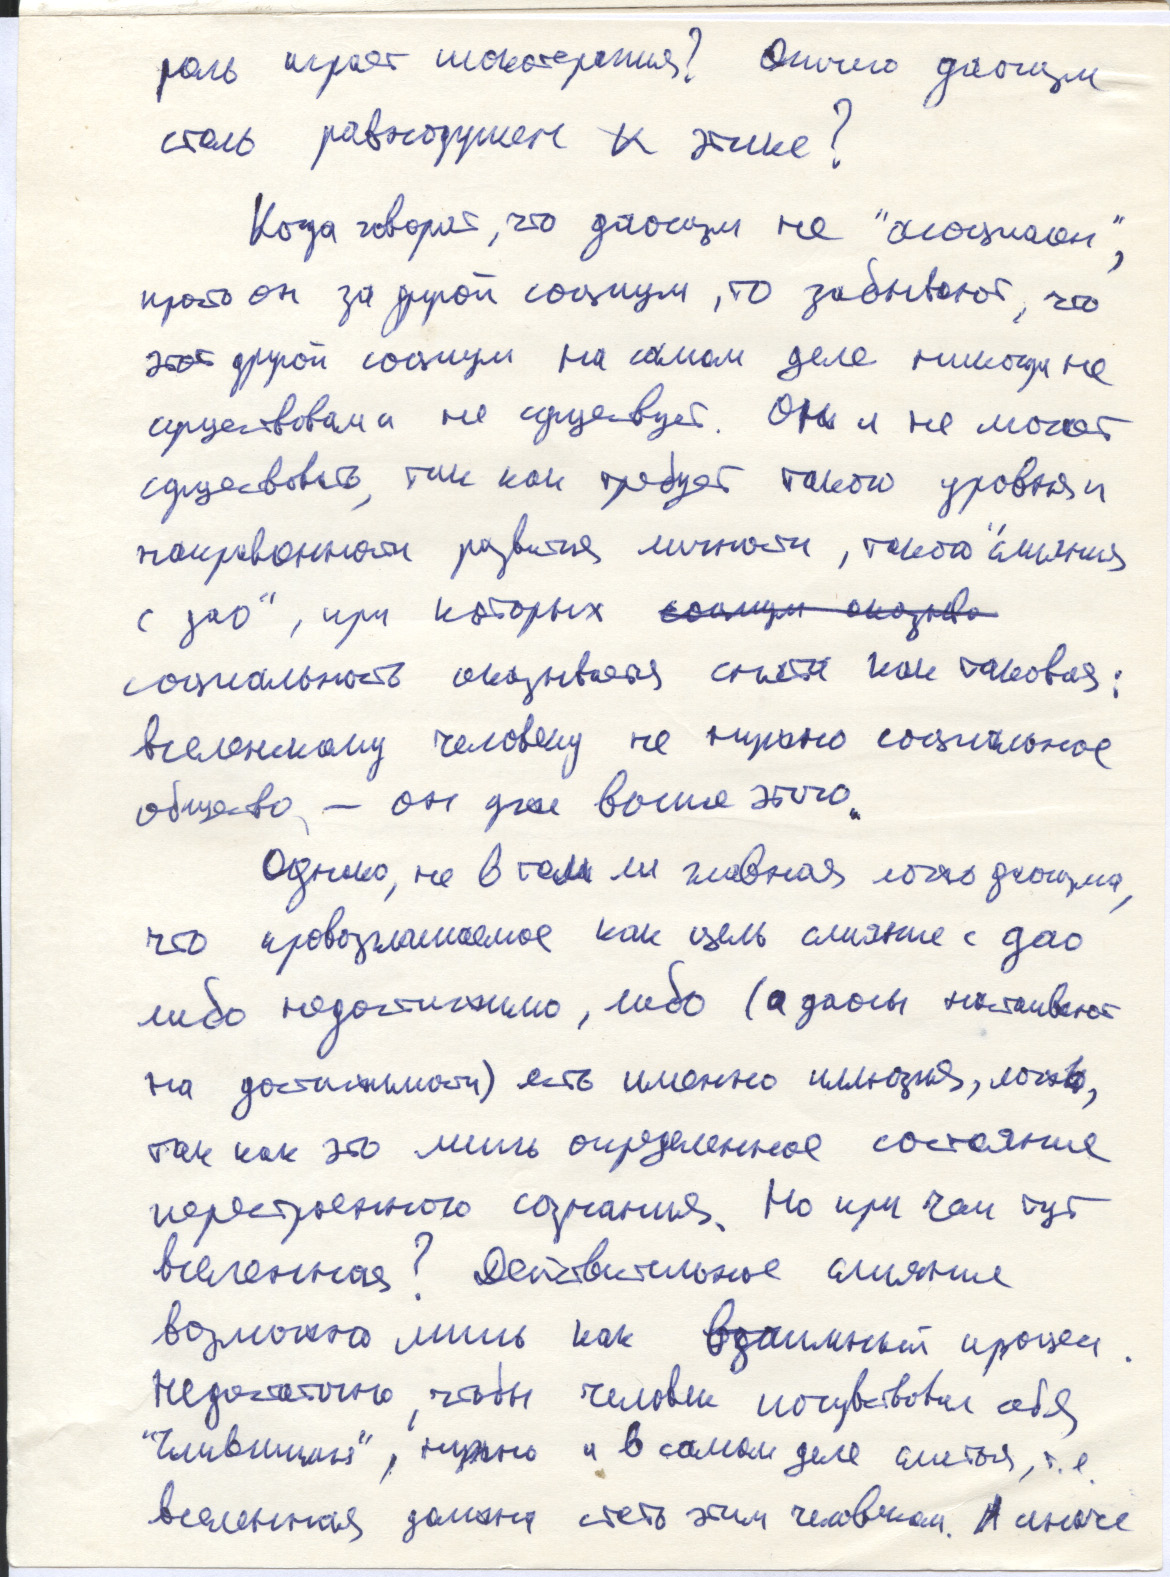 роль играет шокотерапия? Отчего даосизм
столь равнодушен к этике?
Когда говорят, что даосизм не "асоциален",
просто он за другой социум, то забывают, что
этот другой социум на самом деле никогда не
существовал и не существует. Он и не может
существовать, так как требует такого уровня и
направленности развития личности, такого "слияния
с дао", при которых социум оказыва
социальность оказывается снята как таковая:
вселенскому человеку не нужно социальное
общество, – он уже выше этого.
Однако, не в том ли главная ложь даосизма,
что провозглашаемое как цель слияние с дао
либо недостижимо, либо (а даосы настаивают
на достижимости) есть именно иллюзия, ложь,
так как это лишь определенное состояние
перестроенного сознания. Но при чем тут
вселенная? Действительное слияние
возможно лишь как взаимный процесс.
Недостаточно, чтобы человек почувствовал себя
"слившимся", нужно и в самом деле слиться, т.е.
вселенная должна стать этим человеком. А иначе